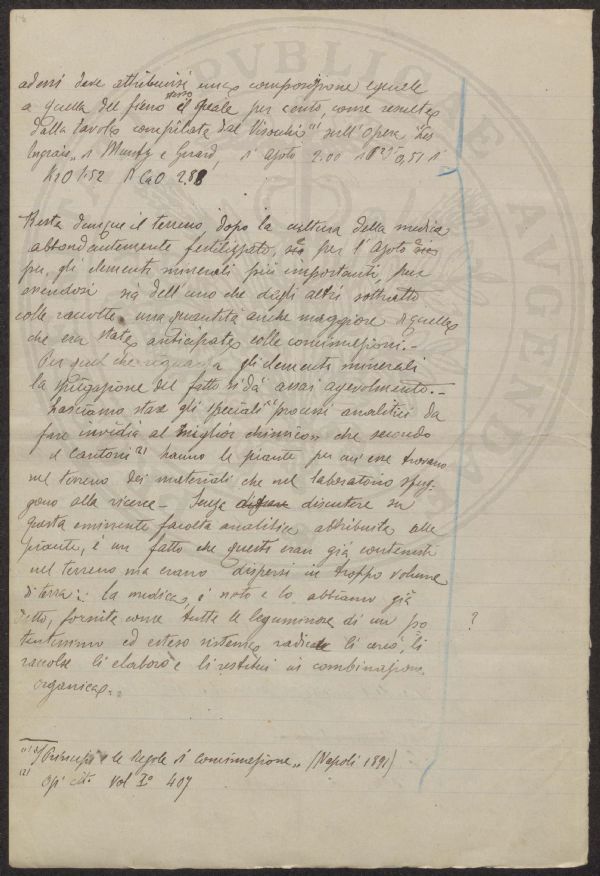 ad essi deve attribuirsi una composizione eguale
a quella del fieno stesso il quale per cento, come resulta
dalla tavola compilata dal Visocchi (1) sull'opera "Les
Engrais" di Muntz e Girard, di Azoto 2.00 di P2O5 0,51 di
K2O 1.52 di CaO 2.88
Resta dunque il terreno, dopo la cultura della medica
abbondantemente fertilizzato, sia per l'azoto
per gli elementi minerali più importanti, pure
avendosi sia dell'uno che degli altri sottratto
colle raccolte una quantità anche maggiore di quella
che era stata anticipata colle concimazioni.-
Per quel che riguarda gli elementi minerali
la spiegazione del fatto si dà assai agevolmente.-
Lasciamo stare gli speciali "processi analitici da
fare invidia al miglior chimico" che secondo
il Cantoni (2) hanno le piante per cui esse trovano
nel terreno dei materiali che nel laboratorio sfug-
gono alla ricerca - Senza discutere su
questa eminente facoltà analitica attribuita alle
piante, è un fatto che questi eran già contenuti
nel terreno ma erano dispersi in troppo volume
di terra: la medica, è noto e lo abbiamo già
detto, fornita come tutte le leguminose di un po
tentissimo ed esteso sistema radicale li cercò, li
raccolse li elaborò e li restituì in combinazioni
organiche.
?
(1) "I Principi e le Regole di concimazione" (Napoli 1891)
(2) Op. cit. Vol I° 407